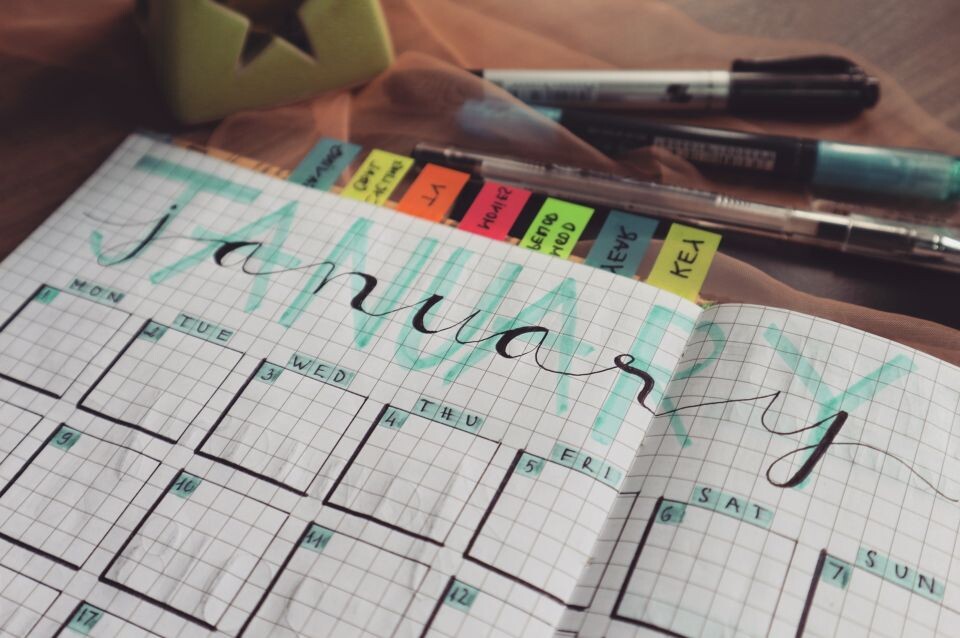 YT
MOVIES
PERIOD
MOOD
YEAR
KEY
JANUARY
january
MON TUE WED THU FRI SAT SUN
1 2 3 4 5 6 7
9 10 11 12
17